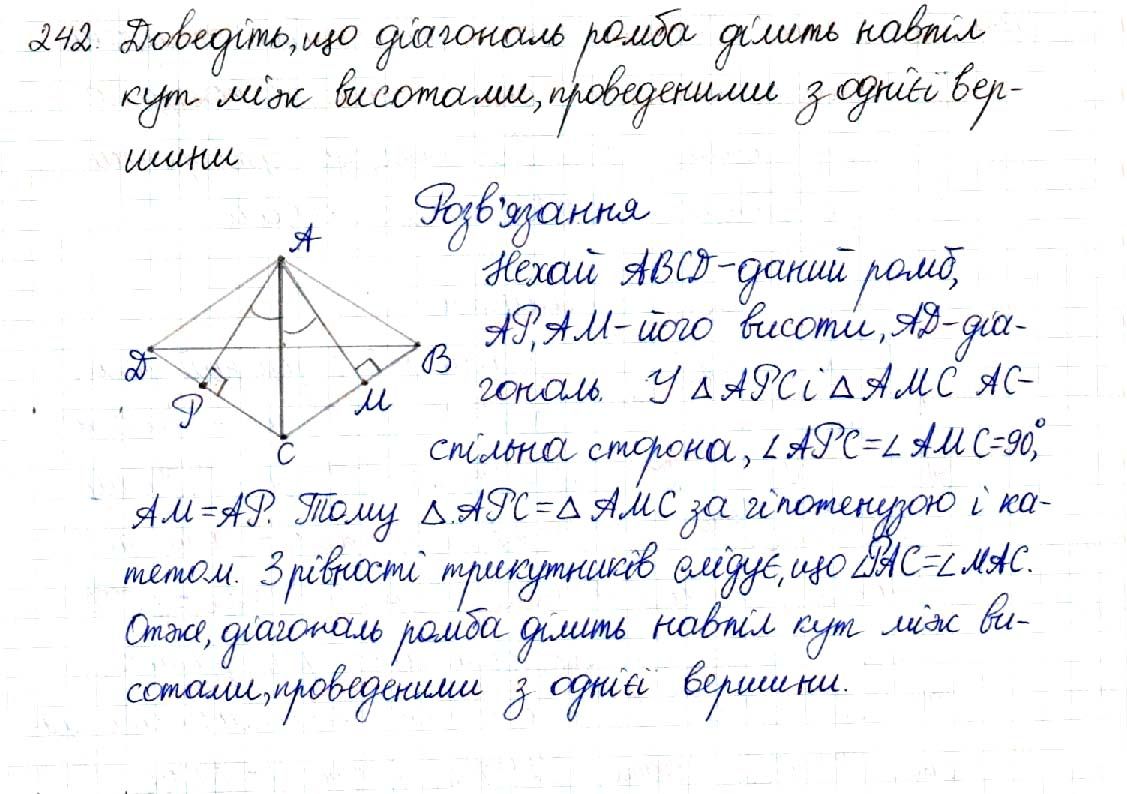 242. Доведіть, що діагональ ромба ділить навпіл
кут між висотами, проведеними з однієї вер-
шини
Розв'язання
A
Нехай ABCD – даний ромб,
AP, AM – його висоти, AD – діа-
D
B
гональ. У △ APC і △ AMC AC –
P
M
C
спільна сторона, ∠APC = ∠AMC = 90°,
AM = AP. Тому △.APC = △ AMC за гіпотенузою і ка-
тетом. З рівності трикутників слідує, що ∠PAC = ∠MAC.
Отже, діагональ ромба ділить навпіл кут між ви-
сотами, проведеними з однієї вершини.